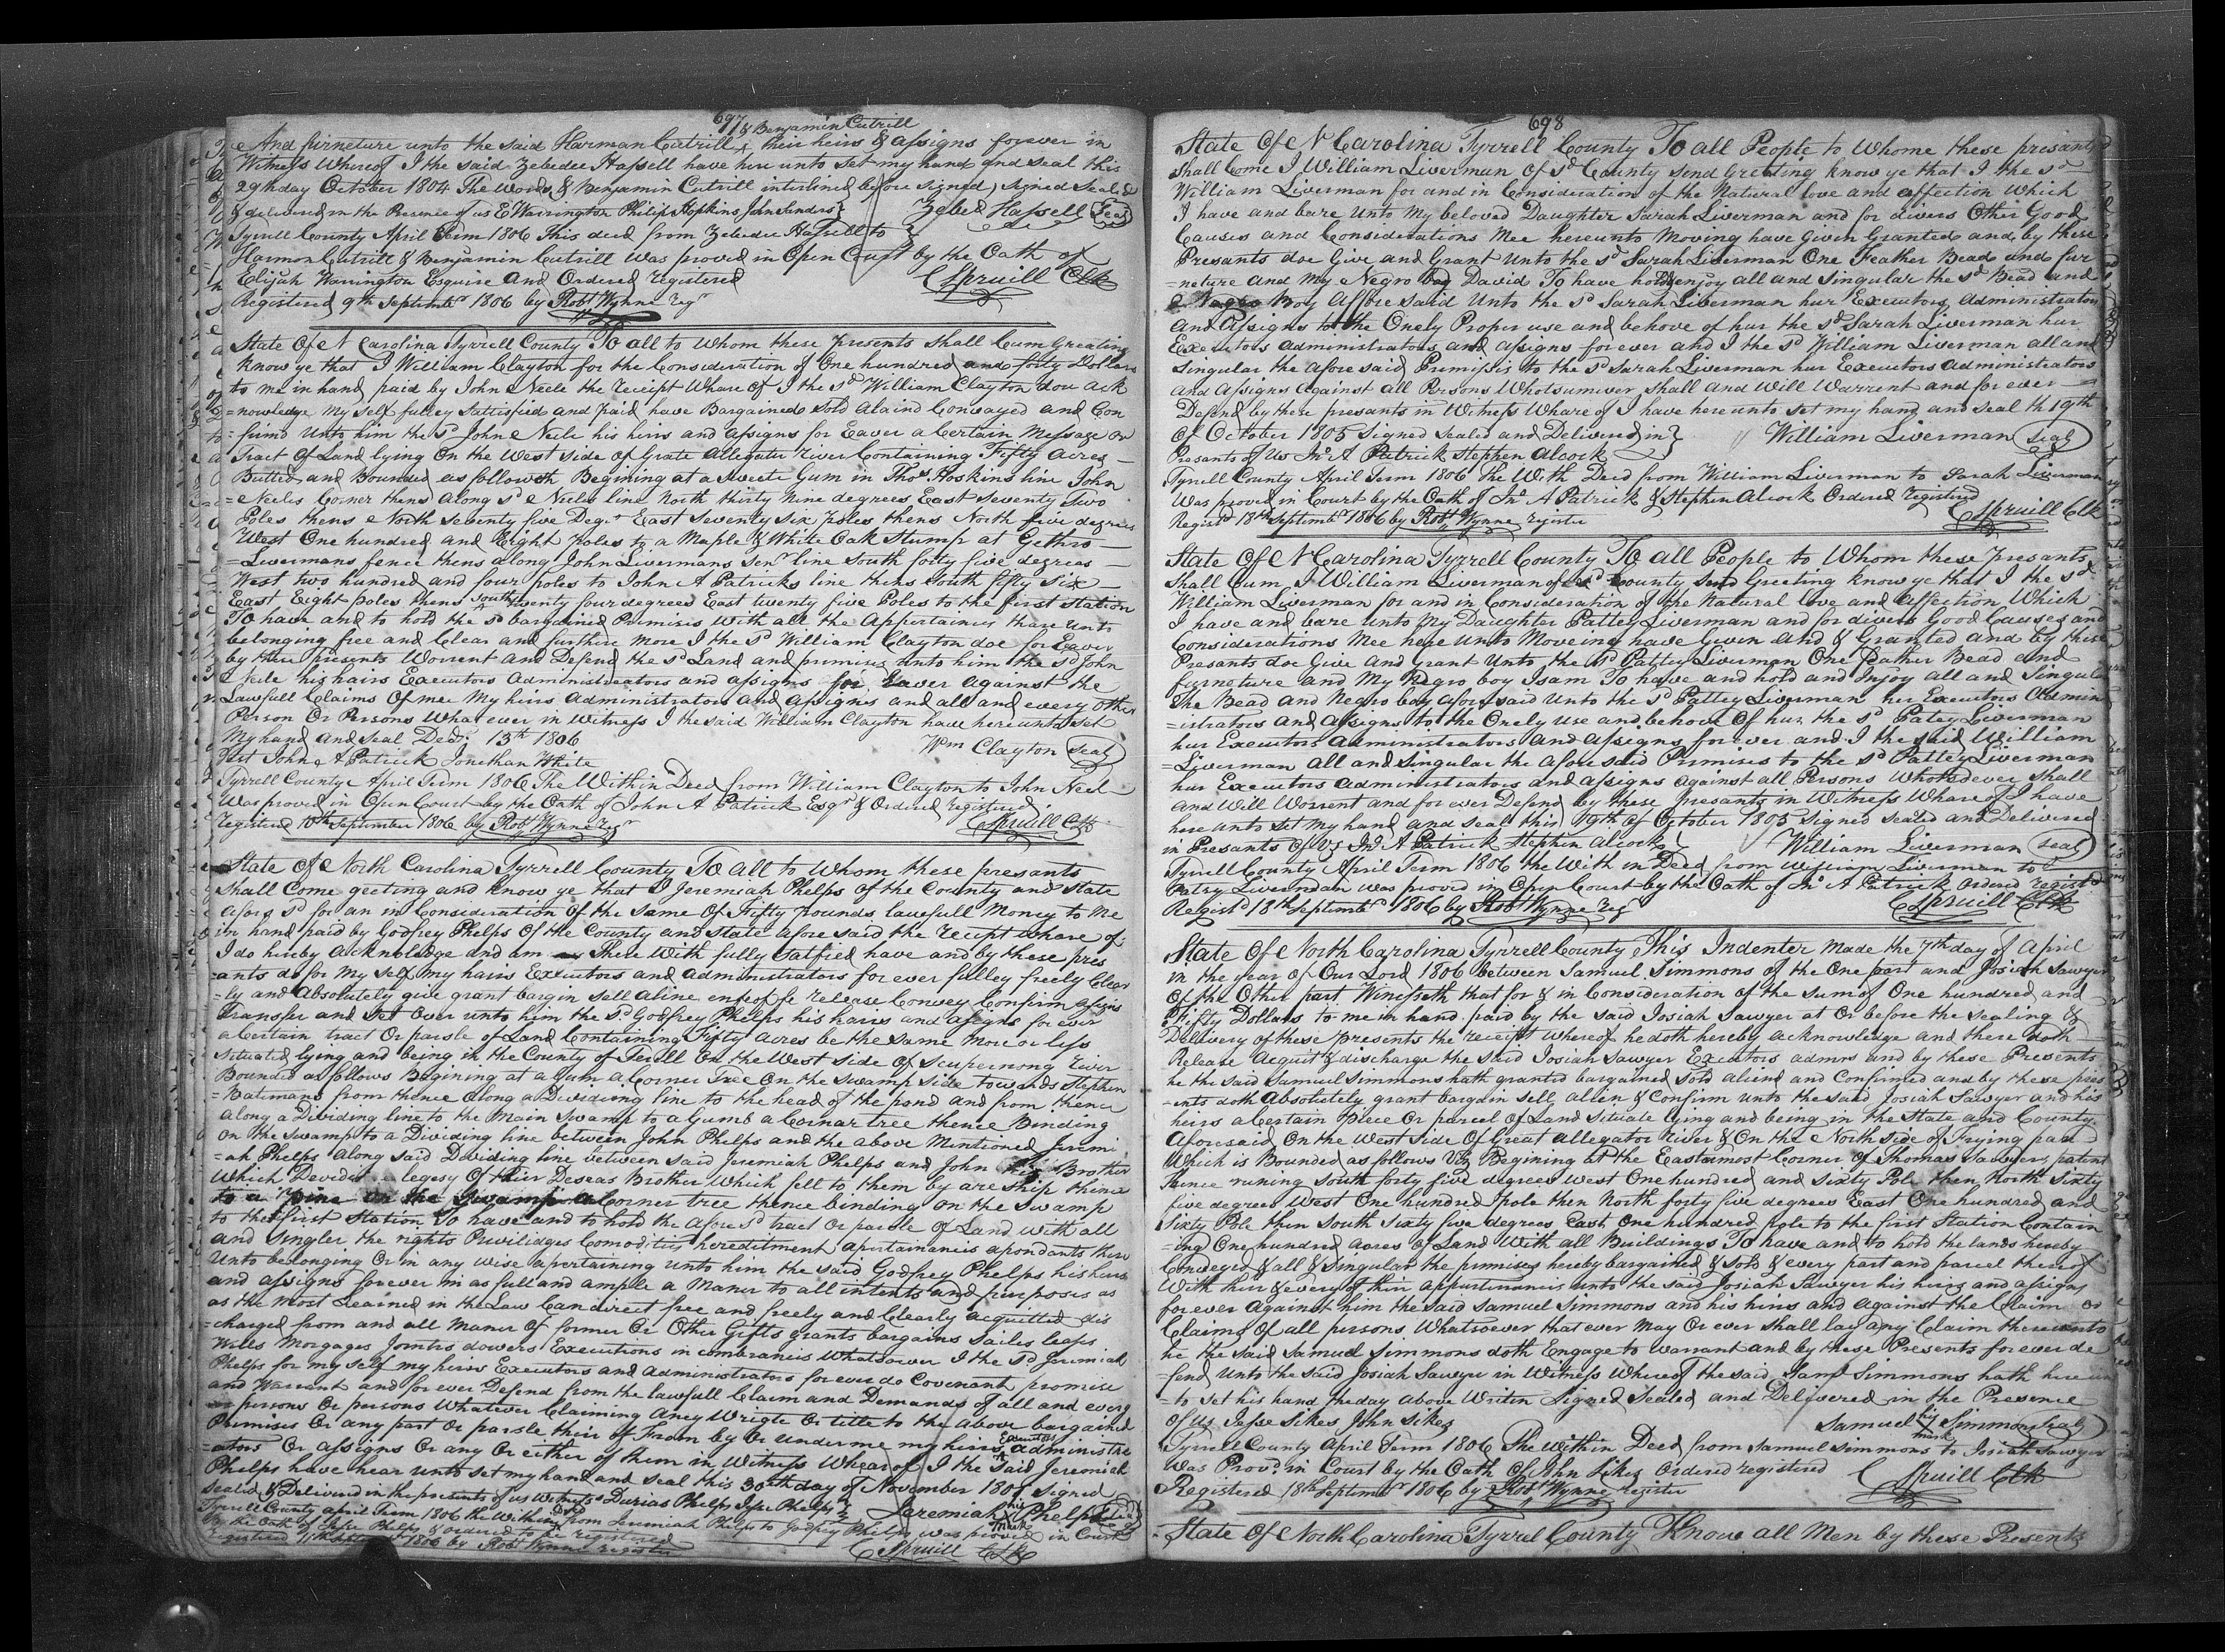 697
& Benjamin Cutrill
And firneture unto the said Harman Cutrill, their heirs & assigns forever in
Witness Whereof I the said Zebedee Hassell have here unto set my hand and seal this
29th day October 1804 The words & Benjamin Cutrill interlined before signed, signed Sealed
& delivered in the Presence of us E Warrington Philip Hopkins John Sanders Zebed Hassell Seal
Tyrrell County April Term 1806 This deed from Zebedee Hassell to
Harmon Cutrill & Benjamin Cutrill was proved in Open Court by the Oath of
Elijah Warrington Esquire and Ordered registered C Spruill Clk
Registered 9th Septembr 1806 by Robt Wynne regr
State Of N Carolina Tyrrell County To all to whom these presents shall Cum Greating
know ye that I William Clayton for the Consideration of One hundred and forty Dollars
to me in hand paid by John Neele the receipt Whare of I the sd William Clayton dou ack
=nowledge my self fulley Sattesfied and paid have Bargained Sold alaind Convayed and Con
=firmd unto him the sd John Neele his heirs and assigns for Eaver a Certain Message or
Tract Of Land lying On the West side of Grate Allegater river Containing Fifty acres
Butted and Bounded as followeth Begining at a Sweete Gum in Thos Hoskins line John
=Neeles Corner thens along sd Neeles line North thirty Nine degrees East Seventy Two
Poles thens North seventy five Degrs East seventy six poles thens North five degrees
West One hundred and Eight Poles to a Maple & White Oak Stump at Gethro
=Livermans fence thens along John Livermans Senr line South forty five degreas
West two hundred and four poles to John A Patricks line thens South fifty Six
East Eight poles thens South twenty four degrees East twenty five Poles to the first station
To have and to hold the sd bargained Premises With all the Appertaines thare unto
belonging free and Clear and further more I the sd William Clayton doe for Eaver
by these presents Worrent and Defend the sd Land and premises unto him the sd John
Neele his hairs Executors administreators and assigns for Eaver against the
Lawfull Claims Of mee my heirs administrators and Assigns and all and every other
Person Or Persons Whatever in Witness I the said William Clayton have here unto set
My hand and Seal Decr 13th 1806 Wm Clayton Seal
Test John A Patrick Jonethan White
Tyrrell County April Term 1806 The Within Deed from William Clayton to John Neel
Was proved in Open Court by the Oath of John A Patrick Esqr & Ordered registered
registered 10th September 1806 by Robt Wynne regr C Spruill Clk
State Of North Carolina Tyrrell County To All to Whom these presants
Shall Come geeting and know ye that I Jeremiah Phelps of the County and State
afore sd for an in Consideration Of the same Of Fifty pounds lawfull Money to Me
in hand paid by Godfrey Phelps Of the County and State afore said the receipt whare of
I do hereby acknoledge and am There With fully Satfied have and by these pres
=ants do for my self my hairs Executors and administrators for ever fulley freely Clear
=ly and Absolutely give grant bargin sell aline enfeoffe release Convey Confirm assigns
transfer and Set Over unto him the sd Godfrey Phelps his hairs and asigns for ever
a Certain tract Or parsle of Land Containing Fifty Acres be the same More or less
situated lying and being in the County of Terell On the West side Of Scupernong river
Bounded as follows Begining at a Gum a Corner Tree On the Swamp Side towards Stephen
=Batemans from thence along a Deviding line to the head of the pond and from thence
along a Dividing line to the Main Swamp to a Gumb a Cornar tree thence Binding
on the Swamp to a Dividing line between John Phelps and the above Mentioned Jeremi
=ah Phelps along said Deviding line between said Jeremiah Phelps and John his Brother
Which Devides legesy Of their Deseas Brother which fell to them by are ship thence
to a Pine on the Swamp a Corner tree thence binding on the Swamp
to the first Station To have and to hold the afore sd tract Or parsle Of Land with all
and Singler the rights Privilidges Comodities hereditment apertainances apondants thire
unto belonging Or in any wise apertaining unto him the said Godfrey Phelps his heirs
and assigns forever in as full and ample a Maner to all intents and purposes as
as the Most Learned in the Law Can direct free and freely and Clearly acquitted dis
=charged from and all Maner Of former Or Other Gifts grants bargains Sailes leases
Wills Morgages Jointrs dowers Executions in combrances Whatsoever I the sd Jeremiah
Phelps for my self my heirs Executors and administrators forever do Covenant promise
and Warrant and for ever Defend from the lawfull Claim and Demands of all and every
persons Or persons Whatever Claiming aney Wright Or title to the above bargained
Premises Or any part Or parsle their of from by Or under me my heirs Executors administra
=ators Or assigns Or any Or either of them in Witness Whearof I the said Jeremiah
Phelps have hear unto set my hand and seal this 30th day of November 180 signed
Sealed & Delivered in the presents of us Witness Durias Phelps Jesse Phelps Jeremiah his mark Phelps Seal
Tyrrell County april Term 1806 the Within Deed from Jeremiah Phelps to Godfrey Phelps was proved in Court
by the Oath of Jesse Phelps & ordered to be registered
registered 11th September 1806 by Robt Wynne register C Spruill Clk
698
State Of N Carolina Tyrrell County To all People to Whome these presants
shall Come I William Liverman Of sd County send Greeting know ye that I the sd
William Liverman for and in Consideration of the Natural love and affection which
I have and bare unto My beloved Daughter Sarah Liverman and for divers Other Good
Causes and Considerations Mee hereunto Moving have Given Granted and by these
Presants doe Give and Grant Unto the sd Sarah Liverman One Feather Bead and fur
=neture and My Negro boy David To have hold enjoy all and Singular the sd Bead and
Negro Boy Affore said Unto the sd Sarah Liverman hur Executors Administrators
and Assigns to the Onely Proper use and behove of hur the sd Sarah Liverman hur
Executors administrators and assigns for ever and I the sd William Liverman all and
Singular the Afore said Premises to the sd Sarah Liverman hur Executors Administrators
and Assigns Against all Persons Whotsumever Shall and Will Warrent and for ever
Defend by these presants in Witness Whare of I have here unto set my hand and seal th 19th
Of October 1805 Signed sealed and Delivered in William Liverman seal
Presants of Us Jno A Patrick Stephen Alcock
Tyrrell County April Term 1806 The With Deed from William Liverman to Sarah Liverman
Was proved in Court by the Oath of Jno A Patrick & Stephen Alcock Ordered registered
Registd 18th Septembr 1806 by Robt Wynne register C Spruill Clk
State Of N Carolina Tyrrell County To All People to Whom these presants
Shall Cum I William Liverman of sd County Send Greeting know ye that I the sd
William Liverman for and in Consideration of the Natural love and affection Which
I have and bare unto My Daughter Pattey Liverman and for divers Good Causes and
Considerations Mee here unto Moveing have Given And & Granted and by these
Presants doe Give and Grant Unto the sd Pattey Liverman One feather Bead and
furnoture and My Negro boy Isam To have and hold and Injoy all and Singular
The Bead and Negro boy afore said Unto the sd Pattey Liverman her Executors Admin
=istrators And assigns to the Onely use and behove Of hur the sd Patey Liverman
hur Executors Administrators And Assigns for ever and I the said William
=Liverman All and Singular the Afore said Premises to the sd Pattey Liverman
hur Executors administrators and assigns against all Persons Whotsoever Shall
and Will Worrent and for ever Defend by these presants in Witness Whare of I have
here unto set my hand and seal this 19th of October 1805 signed sealed and Delivered
in Presants Of Us Jno A Patrick Stephen Alcock William Liverman seal
Tyrrell County April Term 1806 the With in Deed from William Liverman to
Patsy Liverman was proved in Open Court by the Oath of Jno A Patrick Ordered registd
Registd 18th Septembr 1806 by Robt Wynne Regr C Spruill Clk
State Of North Carolina Tyrrell County This Indenter Made the 7th day of April
in the year of Our Lord 1806 between Samuel Simmons of the One part and Josiah Sawyer
Of the Other part Winesseth that for & in Consideration of the sum of One hundred and
Fifty Dollars to me in hand paid by the said Josiah Sawyer at Or before the sealing &
Dellivery of these presents the receipt whereof he doth hereby acknowledge and there doth
Release Acquit & discharge the said Josiah Sawyer Executors admrs and by these Presents
he the said Samuel Simmons hath granted bargained Sold aliend and Confirmed and by these pres
=ents doth Absolutely grant bargain sell alien & Confirm unto the said Josiah Sawyer and his
heirs a Certain Piece Or parcel of Land Situate lying and being in the State and County
Aforesaid On the West Side Of Great Allegator River & On the North side of Frying pan
Which is Bounded as follows Viz Begining at the Eastermost Corner Of Thomas Sawyers patent
thence runing South forty five degrees West One hundred and Sixty Pole then North Sixty
five degrees West One hundred pole then North forty five degrees East One hundred and
Sixty Pole then South Sixty five degrees East One hundred pole to the first Station Contain
=ing One hundred acres of Land With all Buildings To have and to hold the lands hereby
Conveyed & all & singular the premises hereby bargained & Sold & every part and parcel thereof
With their & every of thire appurtenances unto the said Josiah Sawyer his heirs and assigns
for ever Against him the said Samuel Simmons and his heirs and against the Claim or
Claims Of all persons Whatsoever that ever May Or ever shall lay any Claim thereunto
he the said Samuel Simmons doth Engage to warrant and by these Presents for ever de
=fend Unto the said Josiah Sawyer in Witness Whereof the said Saml Simmons hath here un
=to set his hand the day above Writen Signed Sealed and Delivered in the Presence
Of us Jesse Sikes John Sikes Samuel his mark Simmons Seal
Tyrrell County April Term 1806 The Within Deed from Samuel Simmons to Josiah Sawyer
Was Provd in Court by the Oath Of John Sikes Ordered registered C Spruill Clk
Registered 18th Septembr 1806 by Robt Wynne register
State Of North Carolina Tyrrel County Know all Men by these Presents